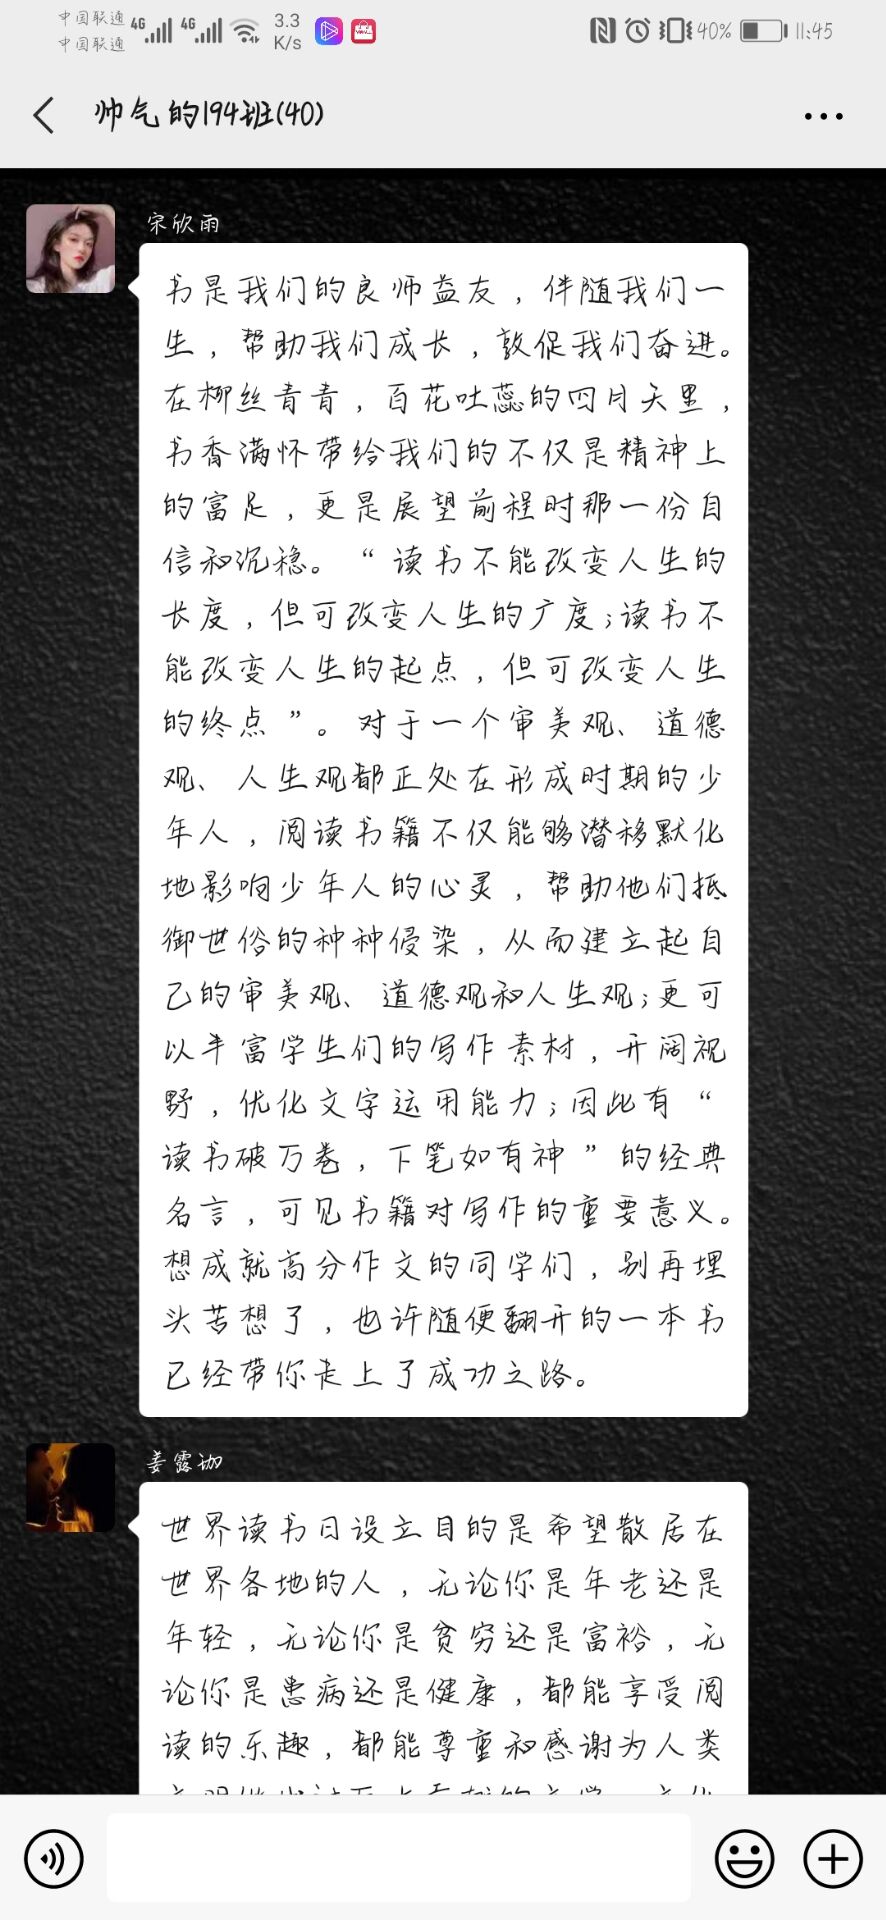 中国联通 4G 4G 3.3 K/s 40% 11:45
中国联通
帅气的194班(40)
宋欣雨
书是我们的良师益友，伴随我们一
生，帮助我们成长，敦促我们奋进。
在柳丝青青，百花吐蕊的四月天里，
书香满怀带给我们的不仅是精神上
的富足，更是展望前程时那一份自
信和沉稳。“读书不能改变人生的
长度，但可改变人生的广度;读书不
能改变人生的起点，但可改变人生
的终点”。对于一个审美观、道德
观、人生观都正处在形成时期的少
年人，阅读书籍不仅能够潜移默化
地影响少年人的心灵，帮助他们抵
御世俗的种种侵染，从而建立起自
己的审美观、道德观和人生观;更可
以丰富学生们的写作素材，开阔视
野，优化文字运用能力;因此有“
读书破万卷，下笔如有神”的经典
名言，可见书籍对写作的重要意义。
想成就高分作文的同学们，别再埋
头苦想了，也许随便翻开的一本书
已经带你走上了成功之路。
姜露珈
世界读书日设立目的是希望散居在
世界各地的人，无论你是年老还是
年轻，无论你是贫穷还是富裕，无
论你是患病还是健康，都能享受阅
读的乐趣，都能尊重和感谢为人类